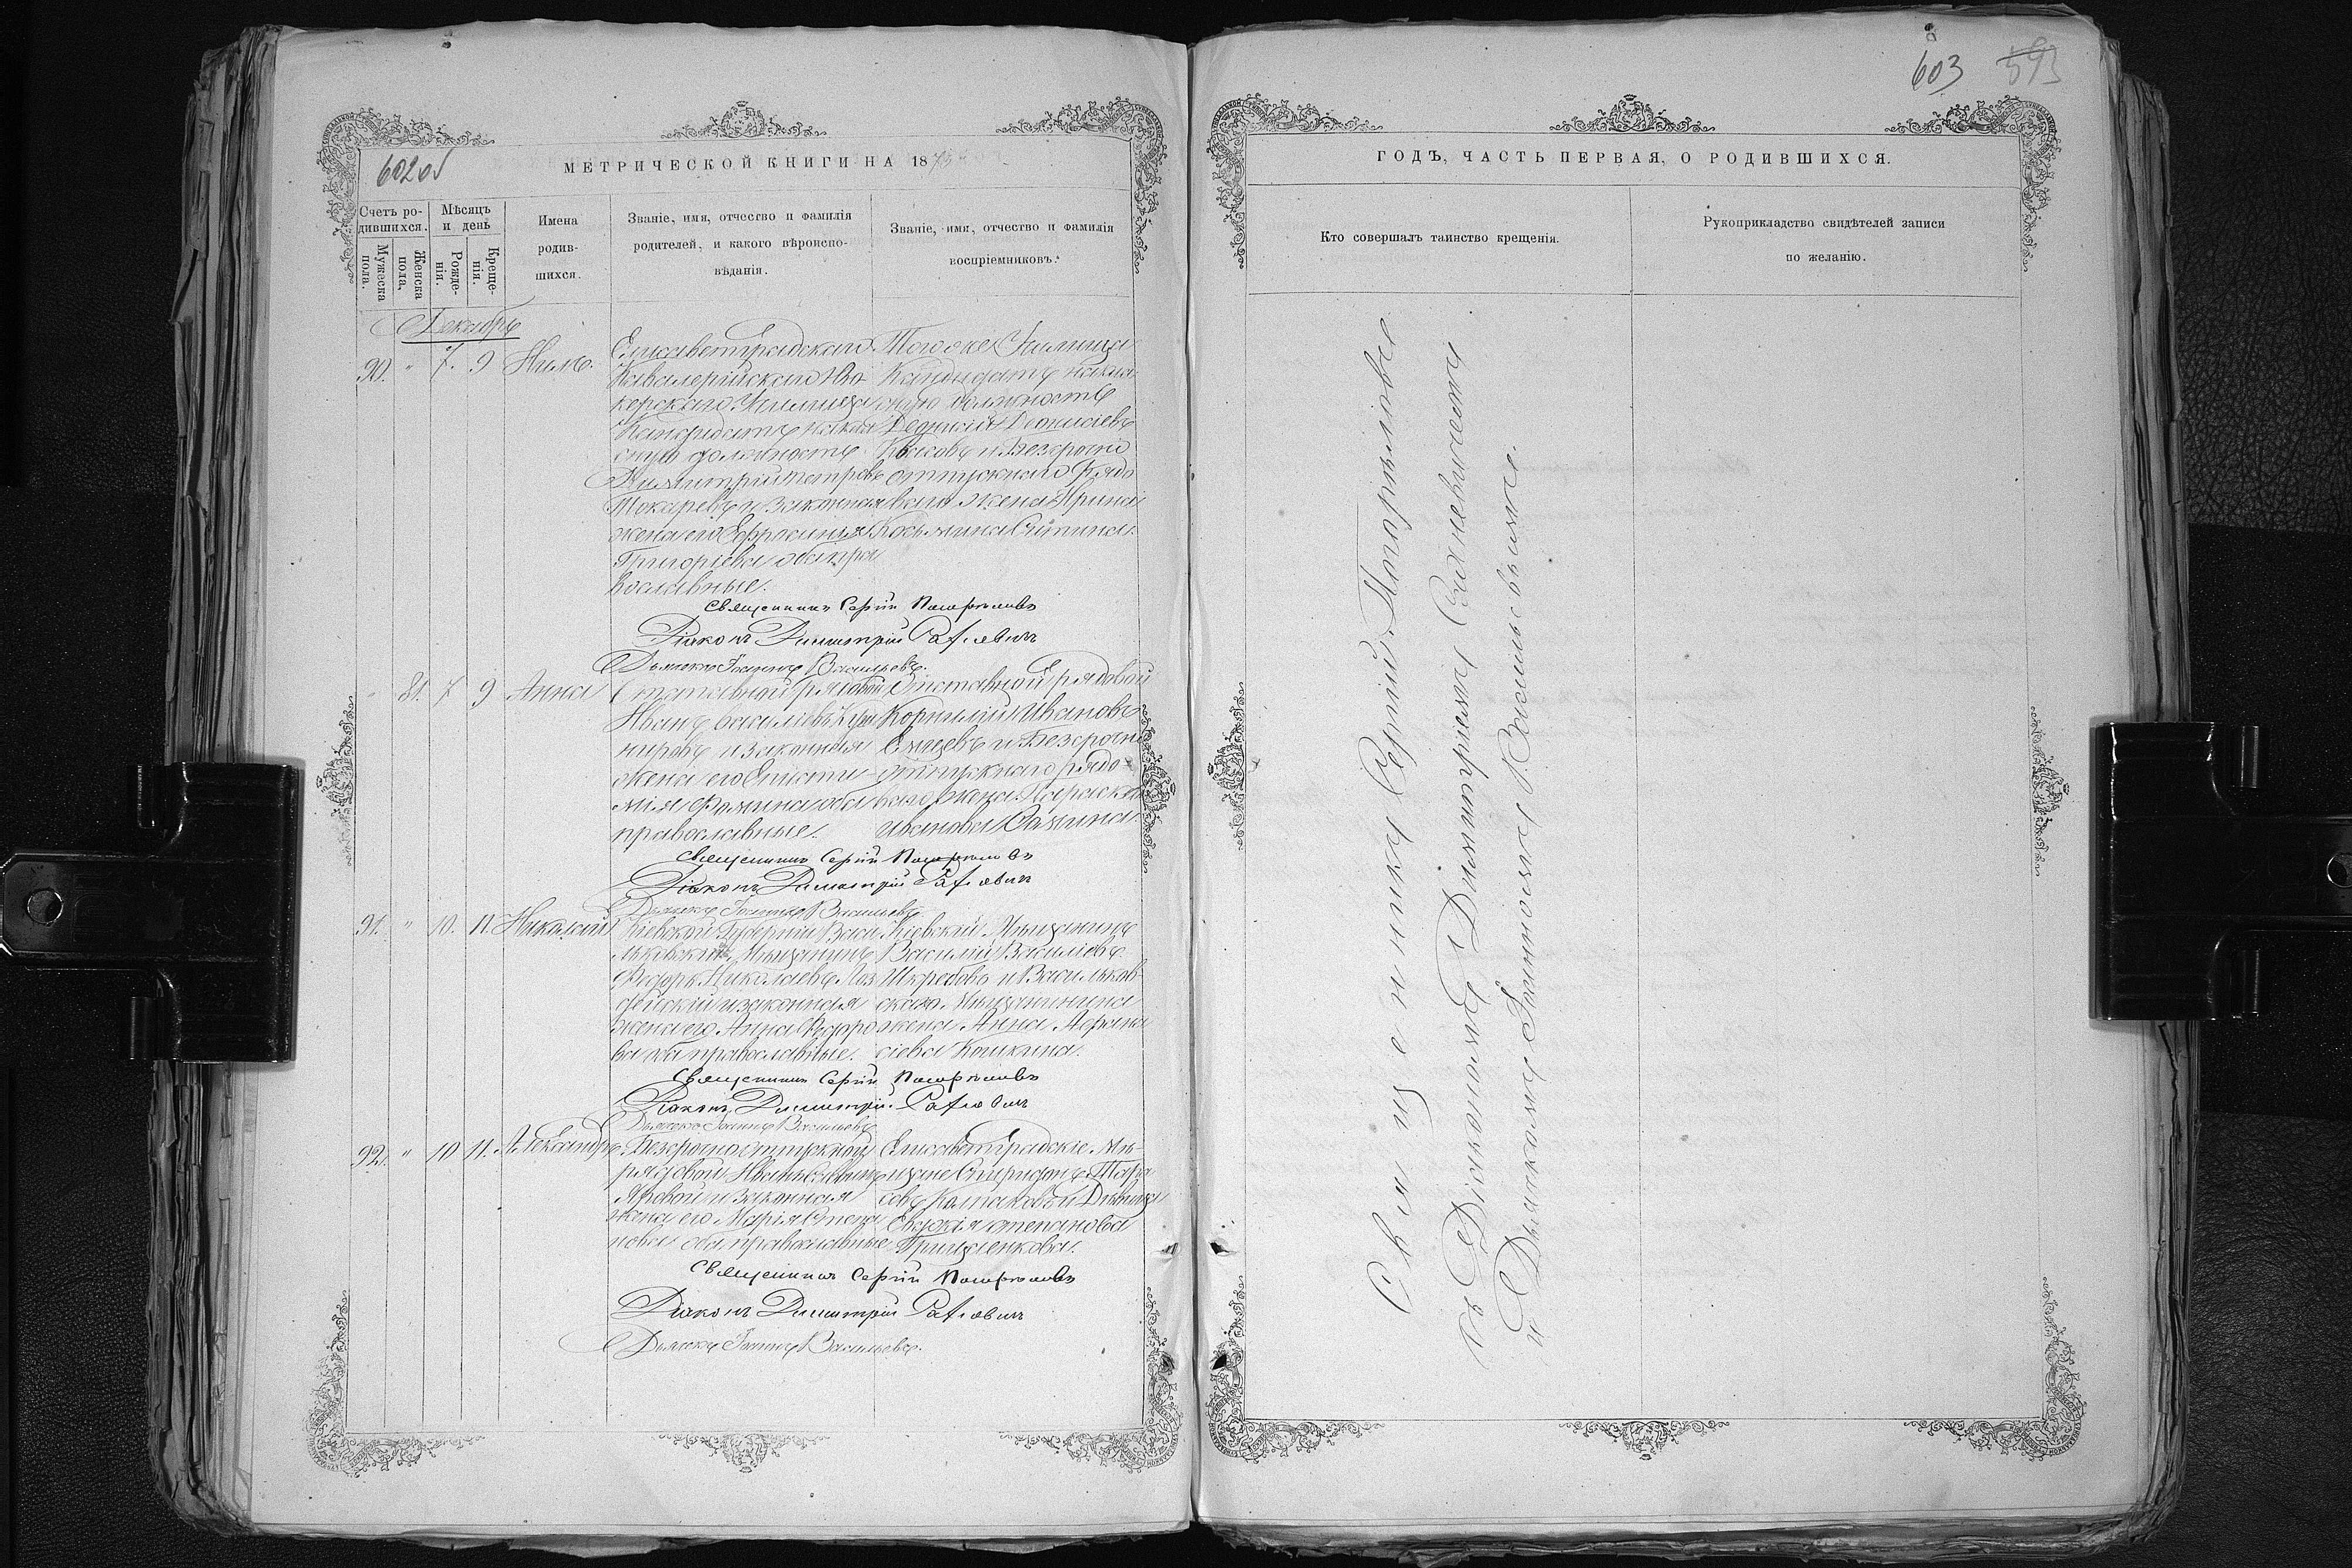 603 593
602об
МЕТРИЧЕСКОЙ КНИГИ НА 1875
Счетъ ро-
дившихся.
Мужеска
пола.
Женска
пола,
Мѣсяцъ
и день
Рожде-
нія.
Креще-
нія.
Имена
родив-
шихся.
Званіе, имя, отчество и фамилія
родителей, и какого вѣроиспо-
вѣданія.
Званіе, имя, отчество и фамилія
воспріемниковъ.
Декабрь
90. " 7. 9 Нилъ.
Елисаветградскаго
Кавалерійскаго Юн-
керскаго Училища
Кандидатъ на клас
сную должность
Димитрій Петровъ
Токаревъ и законная
жена его Ефросинія
Григоріева оба пра
вославные.
Того же Училища
Кандидатъ на клас
сную должность
Деонисій Деонисіевъ
и Безсрочно
отпускнаго Рядо
ваго жена Ирина
Косьмина
Священникъ Сергій Погорѣловъ
Діаконъ Димитрій
Дьячокъ Іоаннъ Васильевъ.
" 81. 7 9 Анна
Отставной рядовой
Иванъ Василіевъ Куш
нировъ и законная
жена его Еписти-
мія Фомина оба
православные.
Отставной рядовой
Корнилій Ивановъ
и Безсрочно
отпускнаго рядо-
ваго жена Параскева
Иванова
Священникъ Сергій Погорѣловъ
Діаконъ Димитрій
Дьячокъ Іоаннъ Васильевъ
91. " 10. 11. Николай
Кіевской Губерніи Васи
льковскій Мѣщанинъ
Федоръ Николаевъ Лоз
и законная
жена его Анна Федоро
ва оба православные.
Кіевскій Мѣщанинъ
Василій Василіевъ
и Васильков-
скаго Мѣщанина
жена Анна Афана
сіева Кошкина.
Священникъ Сергій Погорѣловъ
Діаконъ Димитрій
Дьячокъ Іоаннъ Васильевъ
92. " 10 11. Александръ
Безсрочноотпускной
рядовой Иванъ
Яровой и законная
жена его Марія Степа
нова оба православные
Елисаветградскіе Мѣ-
щане Спиридонъ Тара
совъ и Дѣвица
Евдокія Степанова
Грищенкова.
Священникъ Сергій Погорѣловъ
Діаконъ Димитрій
Дьячокъ Іоаннъ Васильевъ.
ГОДЪ, ЧАСТЬ ПЕРВАЯ, О РОДИВШИХСЯ.
Кто совершалъ таинство крещенія.
Рукоприкладство свидѣтелей записи
по желанію.
Священникъ Сергій Погорѣловъ
съ Діакономъ Димитріемъ
и Дьячкомъ Іоанномъ Васильевымъ.